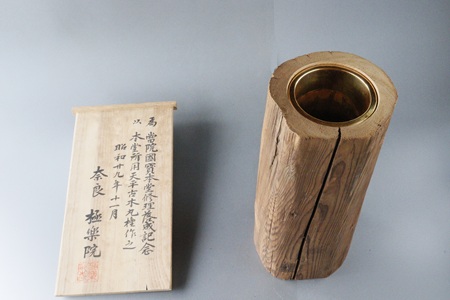 為當院國寳本堂修理落成記念
以本堂所用天平古木丸棰作之
昭和廿九年十一月
奈良 極樂院